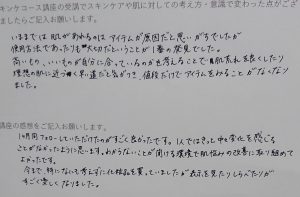 キンケコース講座の受講でスキンケアや肌に対しての考え方・意識で変わった点がござ
ましたらご記入お願いします。
いままでは肌があれるのはアイテムが原因だと思いがちでしたが
使用方法であったりも大切だということが1番の発見でした。
高いもの、いいものが自分に合っているのかを考えることで肌荒れを良くしたり
理想の肌に近づく早い道だと気がつき、値段だけでアイテムをみることがなくなり
ました。
講座の感想をご記入お願いします。
1ヶ月間フォローしていただけたのがすごく良かったです。1人ではきっと中々変化を感じる
ことがなかったように思います。わからないことが聞ける環境で肌悩みの改善に取り組めて
よかったです。
今まで、特になにも考えずに化粧品を買っていましたが表示を見たりしらべたりが
すごく楽しくなりました。